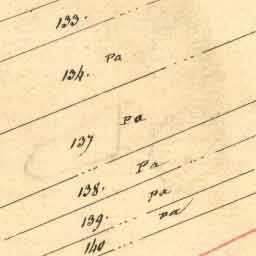 133.
134. Pa
137 Pa
138. Pa
139. Pa
140 Pa